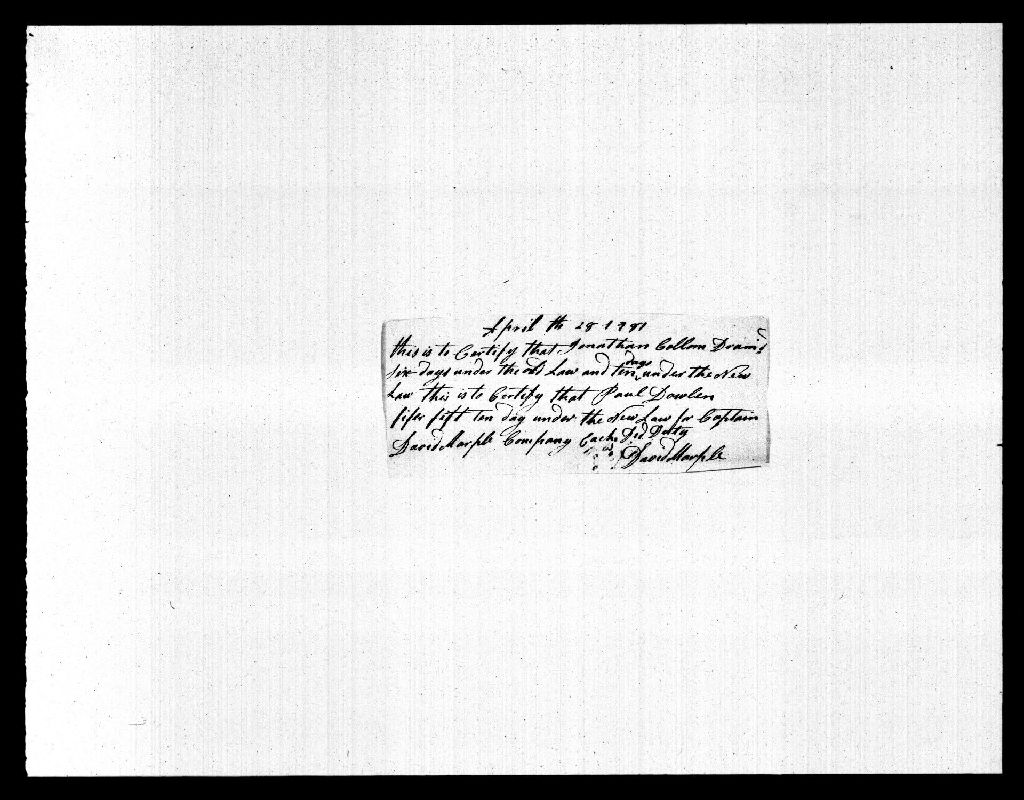 April th 28 1781
this is to Certify that Jonathan Collom Drum
six days under the old Law and ten days under the New
Law this is to Certify that Paul Dowlen
fifer fift ten day under the New Law for Captain
David Marple Company Each Did Duty
David Marple